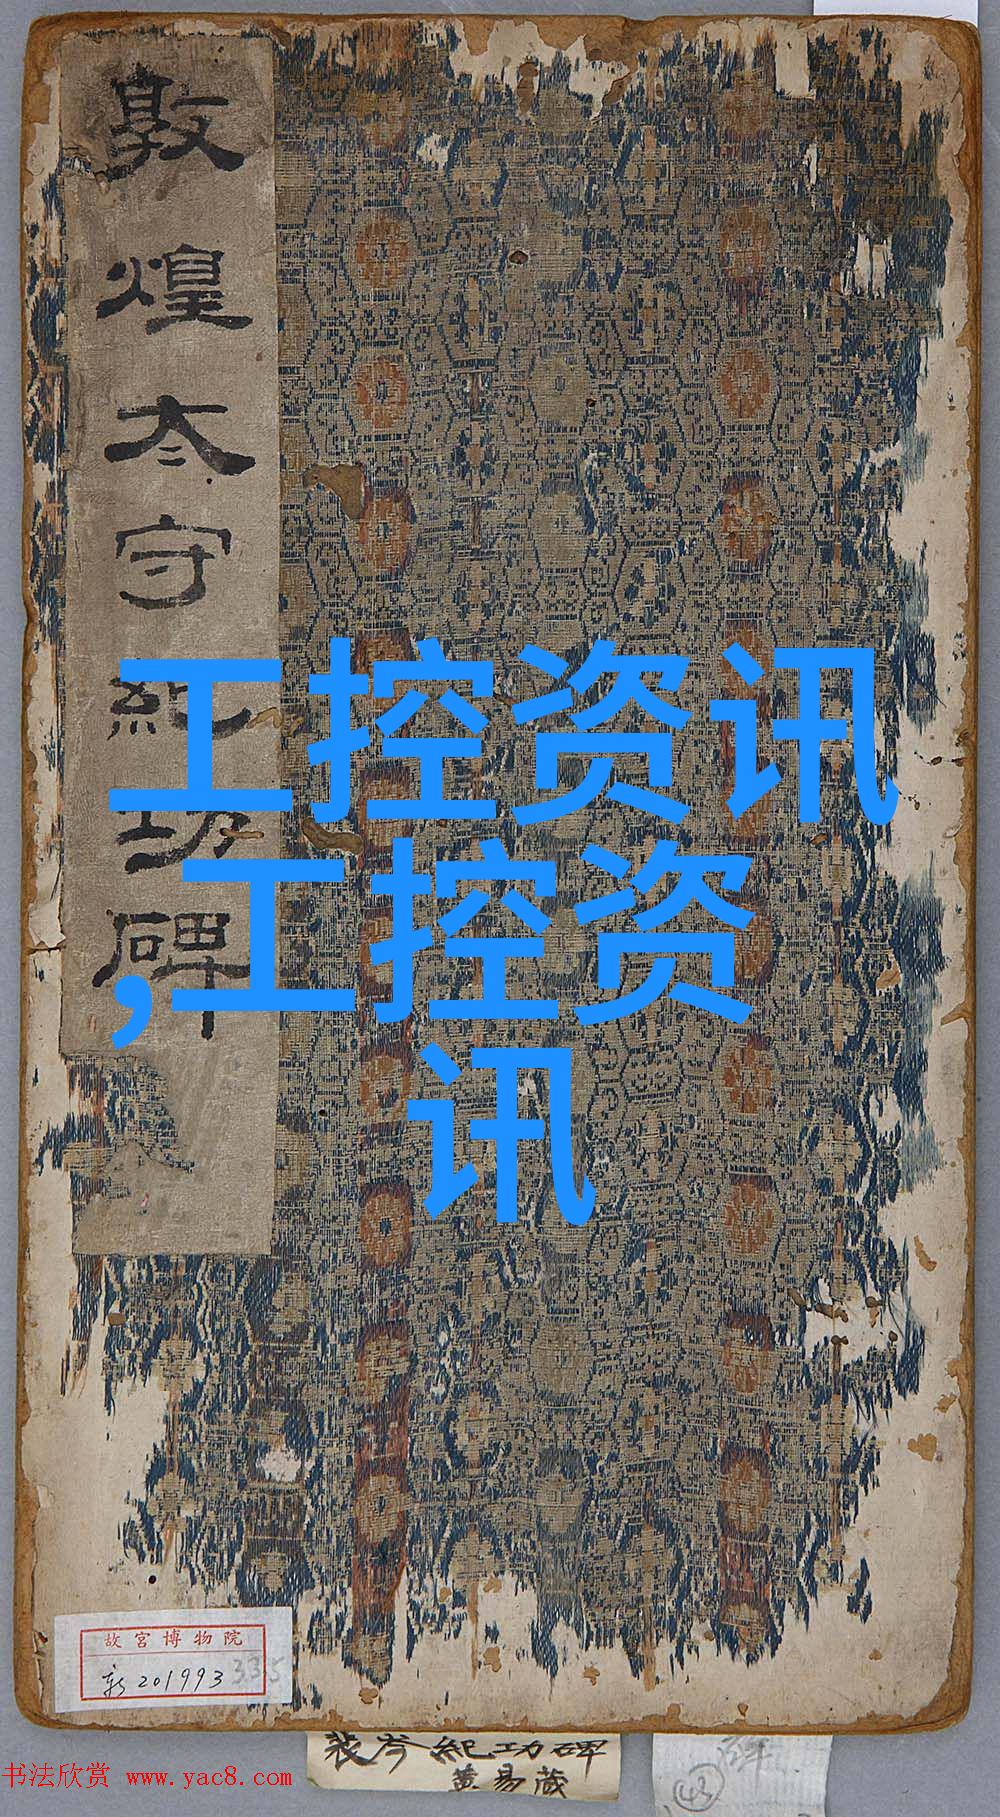 敦煌太守紀功碑
工控资讯
,工控资
讯
故宫博物院
新201993
335
裴岑紀功碑
黄易藏
(43)
书法欣赏 www.yac8.com